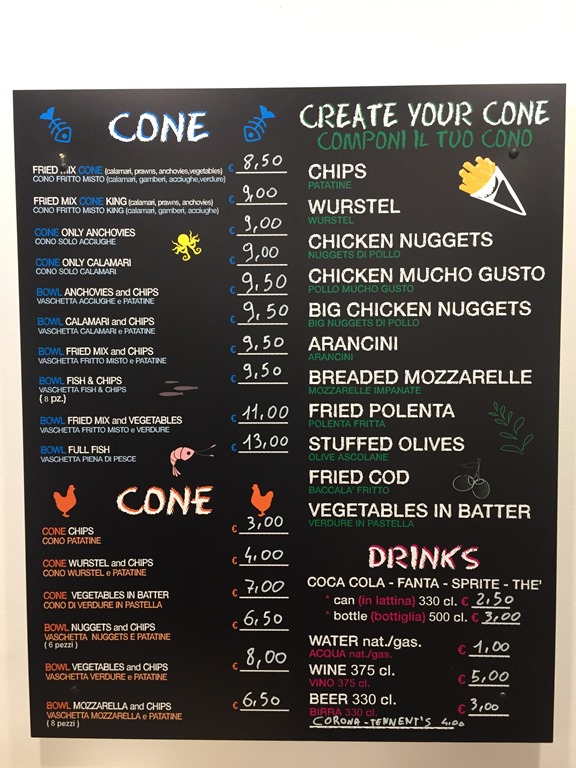 CONE
FRIED MIX CONE (calamari, prawns, anchovies,vegetables) € 8,50
CONO FRITTO MISTO (calamari, gamberi, acciughe,verdure)
FRIED MIX CONE KING (calamari, prawns, anchovies) € 9,00
CONO FRITTO MISTO KING (calamari, gamberi, acciughe)
CONE ONLY ANCHOVIES € 9,00
CONO SOLO ACCIUGHE
CONE ONLY CALAMARI € 9,00
CONO SOLO CALAMARI
BOWL ANCHOVIES and CHIPS € 9,50
VASCHETTA ACCIUGHE e PATATINE
BOWL CALAMARI and CHIPS € 9,50
VASCHETTA CALAMARI e PATATINE
BOWL FRIED MIX and CHIPS € 9,50
VASCHETTA FRITTO MISTO e PATATINE
BOWL FISH & CHIPS € 9,50
VASCHETTA FISH & CHIPS
( 8 pz.)
BOWL FRIED MIX and VEGETABLES € 11,00
VASCHETTA FRITTO MISTO e VERDURE
BOWL FULL FISH € 13,00
VASCHETTA PIENA DI PESCE
CONE
CONE CHIPS € 3,00
CONO PATATINE
CONE WURSTEL and CHIPS € 4,00
CONO WURSTEL e PATATINE
CONE VEGETABLES IN BATTER € 7,00
CONO DI VERDURE IN PASTELLA
BOWL NUGGETS and CHIPS € 6,50
VASCHETTA NUGGETS E PATATINE
( 6 pezzi )
BOWL VEGETABLES and CHIPS € 8,00
VASCHETTA VERDURE e PATATINE
BOWL MOZZARELLA and CHIPS € 6,50
VASCHETTA MOZZARELLA e PATATINE
( 8 pezzi )
CREATE YOUR CONE
COMPONI IL TUO CONO
CHIPS
PATATINE
WURSTEL
WURSTEL
CHICKEN NUGGETS
NUGGETS DI POLLO
CHICKEN MUCHO GUSTO
POLLO MUCHO GUSTO
BIG CHICKEN NUGGETS
BIG NUGGETS DI POLLO
ARANCINI
ARANCINI
BREADED MOZZARELLE
MOZZARELLE IMPANATE
FRIED POLENTA
POLENTA FRITTA
STUFFED OLIVES
OLIVE ASCOLANE
FRIED COD
BACCALA' FRITTO
VEGETABLES IN BATTER
VERDURE IN PASTELLA
DRINKS
COCA COLA - FANTA - SPRITE - THE'
* can (in lattina) 330 cl. € 2,50
* bottle (bottiglia) 500 cl. € 3,00
WATER nat./gas. € 1,00
ACQUA nat./gas.
WINE 375 cl. € 5,00
VINO 375 cl.
BEER 330 cl. € 3,00
BIRRA 330 cl.
CORONA - TENNENT'S 4,00